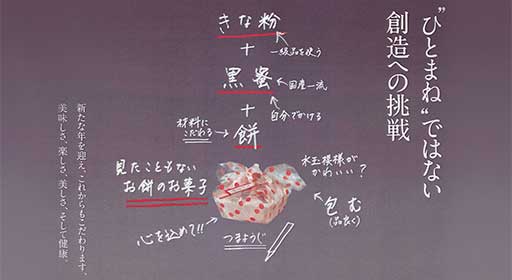 ”ひとまね“ではない
創造への挑戦
きな粉
一級品を使う
＋
黒蜜
国産一流
＋
自分でかける
材料に
こだわる
餅
見たこともない
お餅のお菓子
水玉模様が
かわいい？
包む
(品良く)
心を込めて!!
つまようじ
新たな年を迎え、これからもこだわります。
美味しさ、楽しさ、美しさ、そして健康。